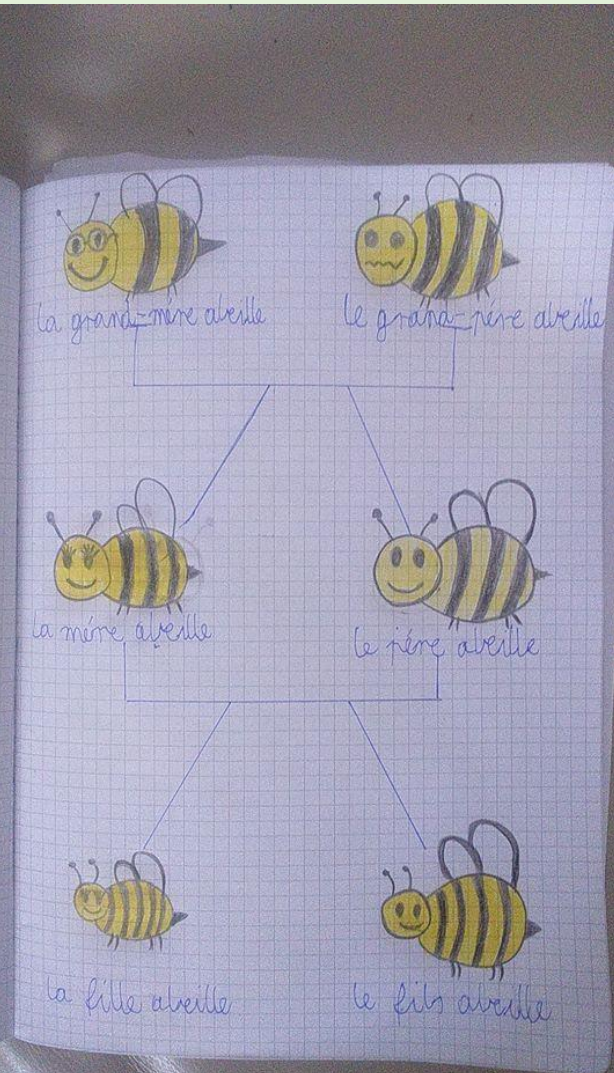 la grand-mère abeille
le grand-père abeille
la mère abeille
le père abeille
la fille abeille
le fils abeille